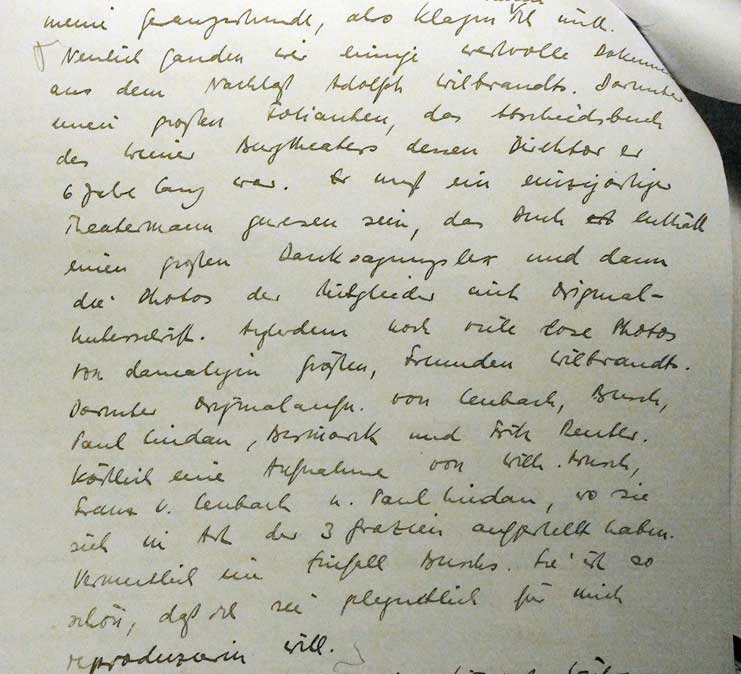 meine , also klagen ich nicht.
Neulich fanden wir einige wertvolle Dokumen
aus dem Nachlaß Adolph Wilbrandts. Darunter
einen großen Folianten, das Abschiedsbuch
des Wiener Burgtheaters dessen Direktor er
6 Jahre lang war. Er muß ein einzigartiger
Theatermann gewesen sein, das Buch enthält
einen großen Danksagungstext und dann
die Photos der Mitglieder mit Original-
unterschrift. Außerdem noch viele lose Photos
von damaligen Größen, Freunden Wilbrandts.
Darunter Originalaufn. von Lenbach, Busch,
Paul Lindau, Bismarck und Fritz Reuter.
Köstlich eine Aufnahme von Wilh. Busch,
Franz v. Lenbach u. Paul Lindau, wo sie
sich in Art der 3 Grazien aufgestellt haben.
Vermutlich ein Einfall Buschs. Sie ist so
schön, daß ich sie gelegentlich für mich
reproduzieren will.